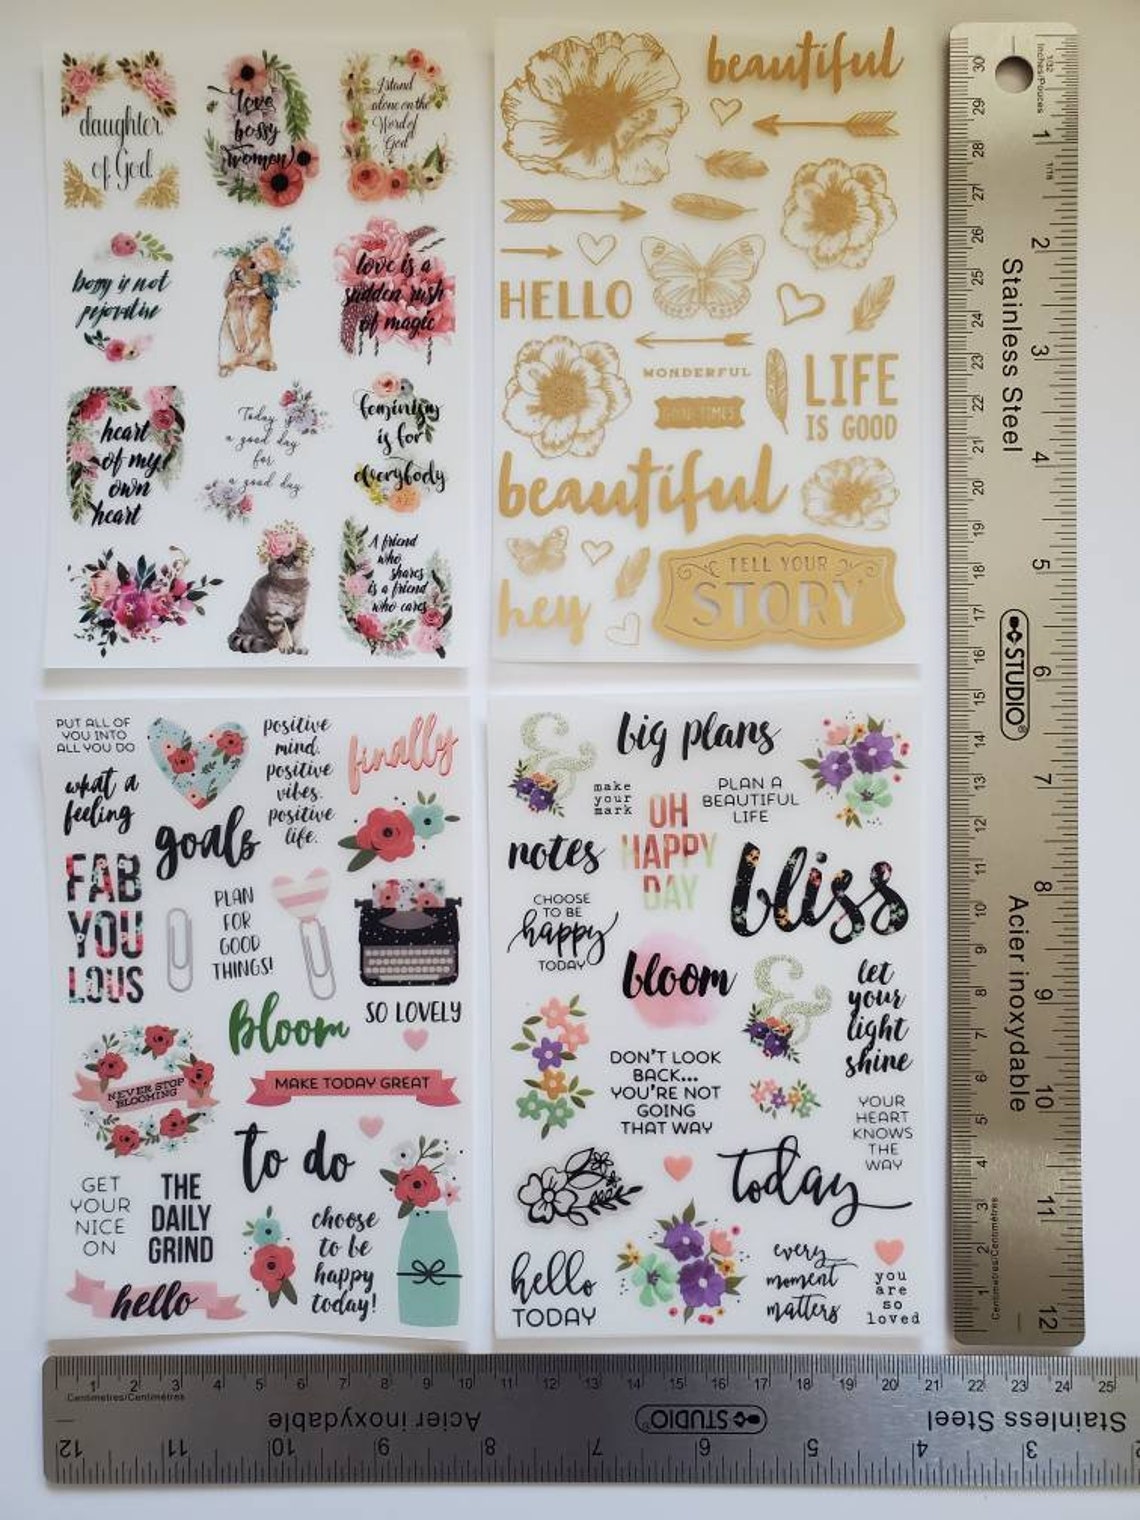 daughter
of God
love
bossy
women
I stand
alone on the
Word of
God
bossy is not
pejorative
love is a
sudden rush
of magic
heart
of my
own
heart
Today is
a good day
for
a good day
feminism
is for
everybody
A friend
who
shares
is a friend
who cares
beautiful
HELLO
WONDERFUL
GOOD TIMES
LIFE
IS GOOD
beautiful
hey
TELL YOUR
STORY
PUT ALL OF
YOU INTO
ALL YOU DO
what a
feeling
positive
mind.
positive
vibes.
positive
life.
finally
goals
FAB
YOU
LOUS
PLAN
FOR
GOOD
THINGS!
bloom
SO LOVELY
NEVER STOP
BLOOMING
MAKE TODAY GREAT
to do
GET
YOUR
NICE
ON
THE
DAILY
GRIND
choose
to be
happy
today!
hello
&
big plans
make
your
mark
OH
HAPPY
DAY
PLAN A
BEAUTIFUL
LIFE
notes
bliss
CHOOSE
TO BE
happy
TODAY
bloom
&
let
your
light
shine
DON'T LOOK
BACK...
YOU'RE NOT
GOING
THAT WAY
YOUR
HEART
KNOWS
THE
WAY
today
hello
TODAY
every
moment
matters
you
are
so
loved
30 29 28 27 26 25 24 23 22 21 20 19 18 17 16 15 14 13 12 11 10 9 8 7 6 5 4 3 2 1
Centimetres/Centimètres
Stainless Steel
STUDIO
Acier inoxydable
1/32
Inches/Pouces
1/16
1 2 3 4 5 6 7 8 9 10 11 12
1 2 3 4 5 6 7 8 9 10 11 12 13 14 15 16 17 18 19 20 21 22 23 24 25
Centimetres/Centimètres
Stainless Steel
STUDIO
Acier inoxydable
Stainless Steel
12 11 10 9 8 7 6 5 4 3 2